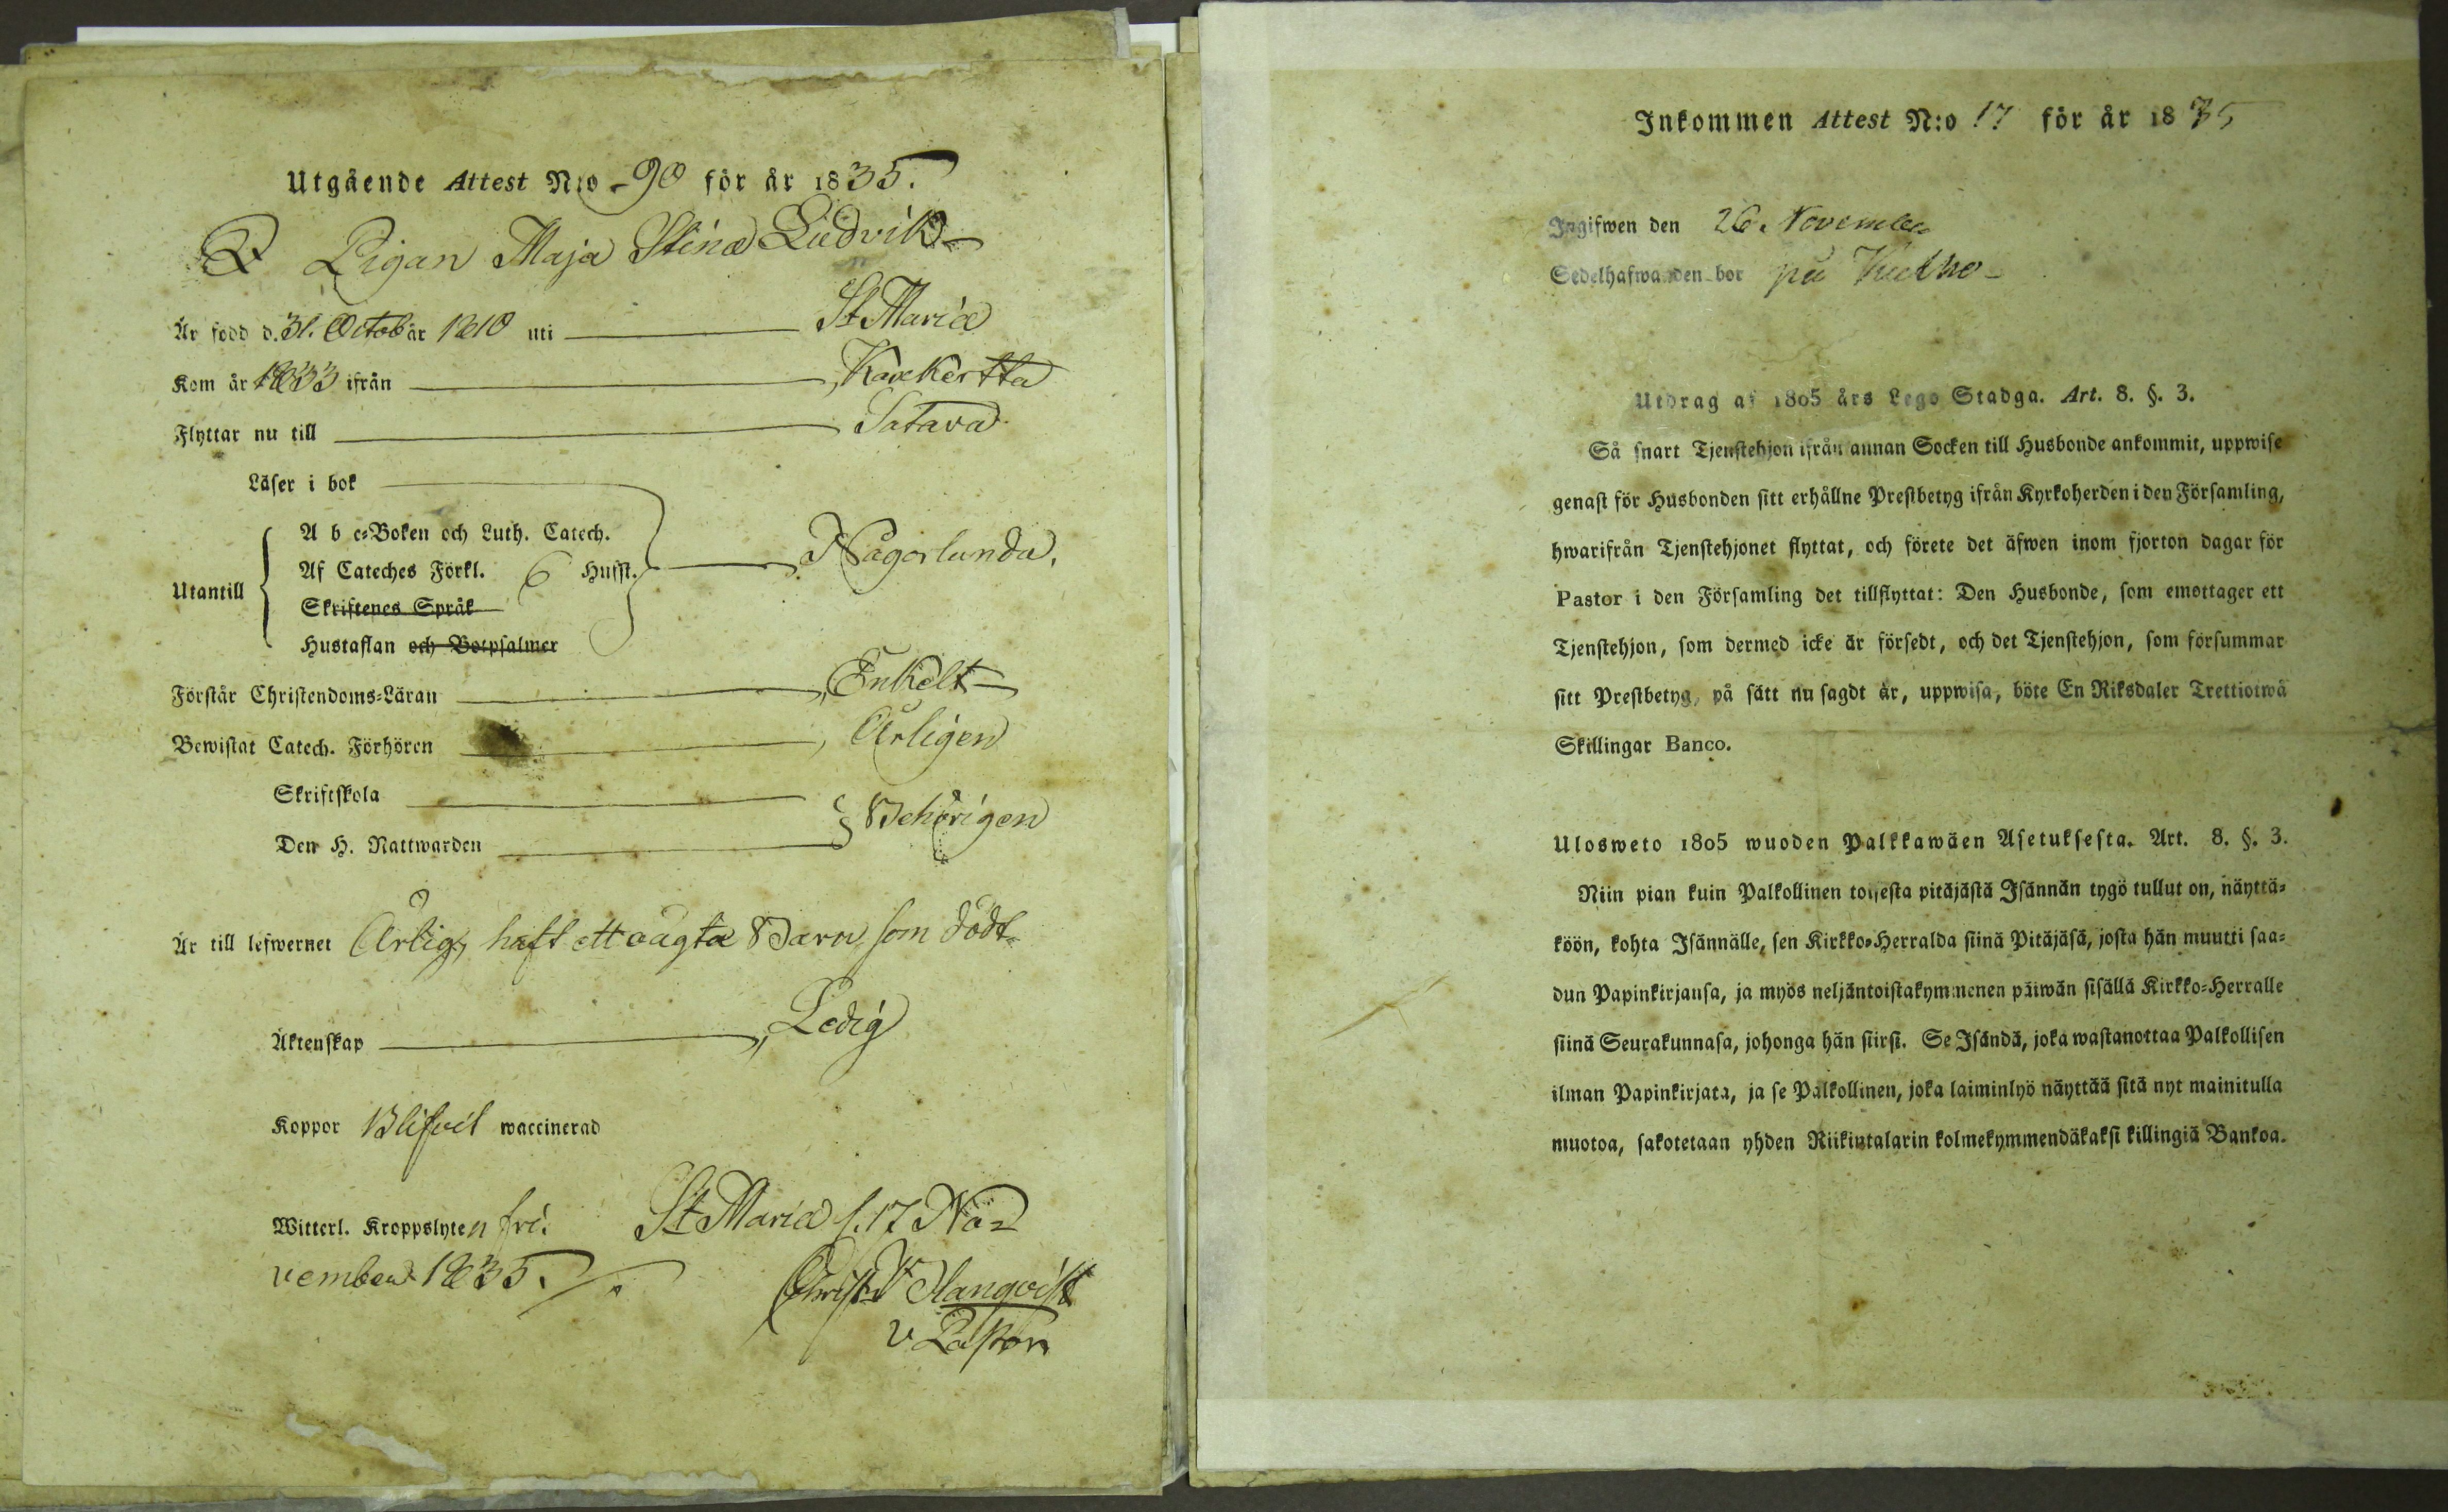 Utgående Attest N:o 90 för år 1835.
Pigan Maja Stina Ludvik
Är född d. 31. Octob år 1810 uti St Mariæ
Kom år 1833 ifrån Karkertta
Flyttar nu till Satava
Läser i bok
Utantill
A b c-Boken och Luth. Catech.
Af Cateches Förkl. 6 Husst.
Skriftenes Språk
Hustaflan och Botpsalmer
Någorlunda.
Förstår Christendoms-Läran Enkelt
Bewistat Catech. Förhören Årligen
Skriftskola
Den H. Nattwarden
Behörigen
Är till lefwernet Ärlig, haft ett oägta Barn, som dödt
Äktenskap Ledig
Koppor Blifvit waccinerad
Witterl. Kroppslyten fri. St Mariæ d. 17 No=
vember 1835.
v Pastor
Inkommen Attest N:o 17 för år 1835
Ingifwen den 26. November
Sedelhafwanden bor på
Utdrag af 1805 års Lego Stadga. Art. 8. §. 3.
Så snart Tjenstehjon ifrån annan Socken till Husbonde ankommit, uppwise
genast för Husbonden sitt erhållne Prestbetyg ifrån Kyrkoherden i den Församling,
hwarifrån Tjenstehjonet flyttat, och förete det äfwen inom fjorton dagar för
Pastor i den Församling det tillflyttat: Den Husbonde, som emottager ett
Tjenstehjon, som dermed icke är försedt, och det Tjenstehjon, som försummar
sitt Prestbetyg, på sätt nu sagdt är, uppwisa, böte En Riksdaler Trettiotwå
Skillingar Banco.
Ulosweto 1805 wuoden Palkkawäen Asetuksesta. Art. 8. §. 3.
Niin pian kuin Palkollinen toisesta pitäjästä Isännän tygö tullut on, näyttä=
köön, kohta Isännälle, sen Kirkko-Herralda siinä Pitäjäsä, josta hän muutti saa=
dun Papinkirjansa, ja myös neljäntoistakymmenen päiwän sisällä Kirkko-Herralle
siinä Seurakunnasa, johonga hän siirsi. Se Isändä, joka wastanottaa Palkollisen
ilman Papinkirjata, ja se Palkollinen, joka laiminlyö näyttää sitä nyt mainitulla
muotoa, sakotetaan yhden Riikintalarin kolmekymmendäkaksi killingiä Bankoa.